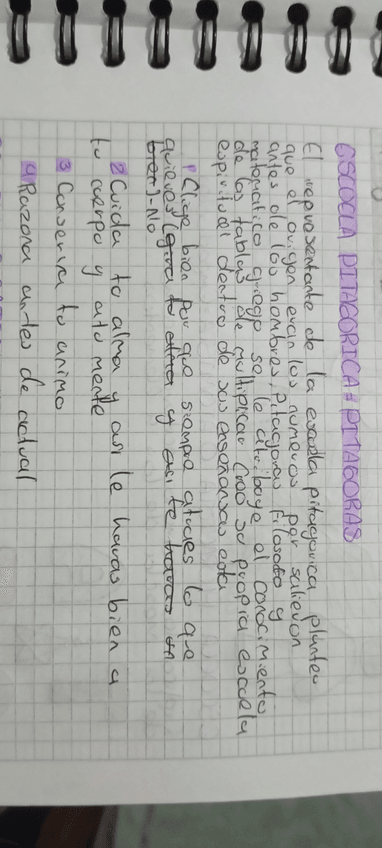 ESCOCLA PITAGORICA = PITAGORAS
El representante de la escuela pitagorica planteo
que el origen eran los numeros por salieron
antes de los hombres, pitagoras filosofo y
matematico griego se le atribuye el conocimiento
de las tablas de multiplicar creo su propia escuela
espiritual dentro de sus enseñansas esta
1 Elige bien por que siempre atraes lo que
quieres y te
No
2 Cuida tu alma y asi le haras bien a
tu cuerpo y a tu mente
3 Conserva tu animo
4 Razona antes de actuar